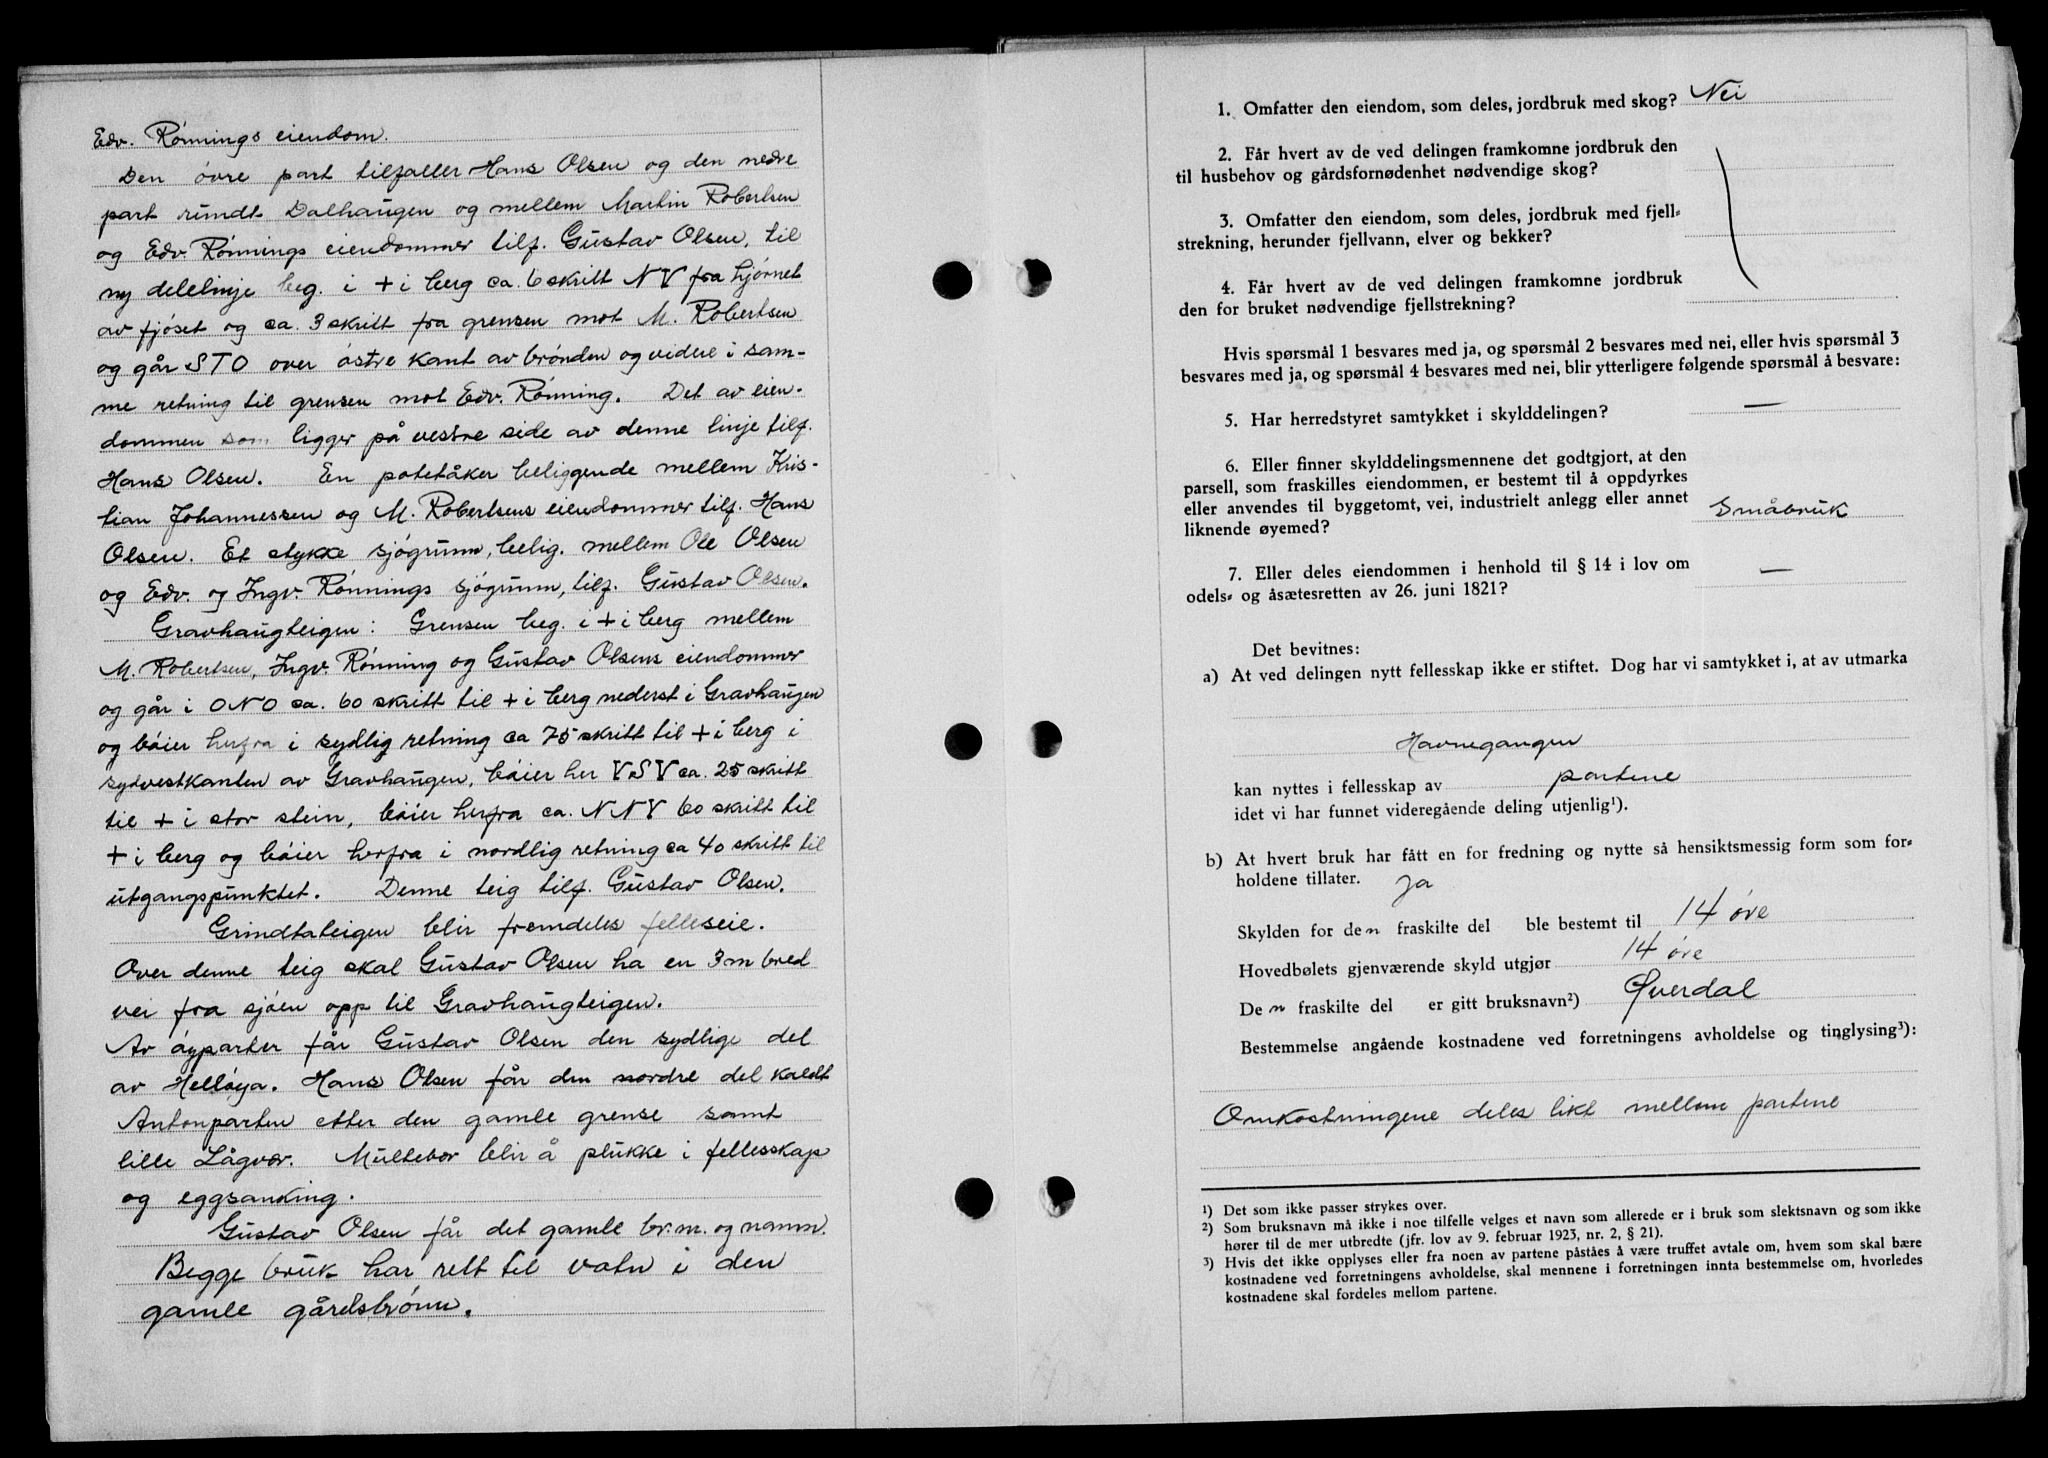 Edv. Rónnings eiendom.
Den óvre part tilfaller Hans Olsen og den nedre
part rundt Dalhaugen og mellem Martin Robertsen
og Edv Rónnings eiendommer tilf. Gustav Olsen, til
ny delelinje beg. i + i berg ca. 6 skritt NV fra hjórnet
av fjóset og ca. 3 skritt fra grensen mot M. Robertsen
og går STO over óstre kant av brónden og videre i sam-
me retning til grensen mot Edv. Rónning. Det av eien-
dommen som ligger på vestre side av denne linje tilf.
Hans Olsen. En potetåker beliggende mellem Kris-
tian Johannessen og M. Robertsens eiendommer tilf. Hans
Olsen. Et stykke sjógrunn, belig. mellem Ole Olsen
og Edv. og Ingv. Rónnings sjógrunn, tilf. Gustav Olsen.
Gravhaugteigen: Grensen beg. i + i berg mellem
M. Robertsen, Ingv. Rónning og Gustav Olsens eiendommer
og går i ONO ca. 60 skritt til + i berg nederst i Gravhaugen
og bóier herfra i sydlig retning ca 75 skritt til + i berg i
sydvestkanten av Gravhaugen, bóier her VSV ca. 25 skritt
til + i stor stein, bóier herfra ca. NNV 60 skritt til
+ i berg og bóier herfra i nordlig retning ca 40 skritt til
utgangspunktet. Denne teig tilf. Gustav Olsen.
Grindtateigen blir fremdeles felleseie.
Over denne teig skal Gustav Olsen ha en 3 m bred
vei fra sjóen opp til Gravhaugteigen.
Av óyparter får Gustav Olsen den sydlige del
av Hellóya. Hans Olsen får den nordre del kaldt
Antonparten etter den gamle grense samt
lille Lågvær. Multebær blir å plukke i fellesskap
og eggsanking.
Gustav Olsen får det gamle br.m. og navnn.
Begge bruk har rett til vatn i den
gamle gårdsbrónn.
1. Omfatter den eiendom, som deles, jordbruk med skog? Nei
2. Får hvert av de ved delingen framkomne jordbruk den
til husbehov og gårdsfornødenhet nødvendige skog?
3. Omfatter den eiendom, som deles, jordbruk med fjell-
strekning, herunder fjellvann, elver og bekker?
4. Får hvert av de ved delingen framkomne jordbruk
den for bruket nødvendige fjellstrekning?
Hvis spørsmål 1 besvares med ja, og spørsmål 2 besvares med nei, eller hvis spørsmål 3
besvares med ja, og spørsmål 4 besvares med nei, blir ytterligere følgende spørsmål å besvare:
5. Har herredstyret samtykket i skylddelingen? —
6. Eller finner skylddelingsmennene det godtgjort, at den
parsell, som fraskilles eiendommen, er bestemt til å oppdyrkes
eller anvendes til byggetomt, vei, industrielt anlegg eller annet
liknende øyemed? Småbruk
7. Eller deles eiendommen i henhold til § 14 i lov om
odels- og åsætesretten av 26. juni 1821? —
Det bevitnes:
a) At ved delingen nytt fellesskap ikke er stiftet. Dog har vi samtykket i, at av utmarka
Havnegangen
kan nyttes i fellesskap av partene
idet vi har funnet videregående deling utjenlig¹).
b) At hvert bruk har fått en for fredning og nytte så hensiktsmessig form som for-
holdene tillater. Ja
Skylden for den fraskilte del ble bestemt til 14 øre
Hovedbølets gjenværende skyld utgjør 14 øre
Den fraskilte del er gitt bruksnavn²) Øverdal
Bestemmelse angående kostnadene ved forretningens avholdelse og tinglysing³):
Omkostningene deles likt mellem partene
¹) Det som ikke passer strykes over.
²) Som bruksnavn må ikke i noe tilfelle velges et navn som allerede er i bruk som slektsnavn og som ikke
hører til de mer utbredte (jfr. lov av 9. februar 1923, nr. 2, § 21).
³) Hvis det ikke opplyses eller fra noen av partene påståes å være truffet avtale om, hvem som skal bære
kostnadene ved forretningens avholdelse, skal mennene i forretningen innta bestemmelse om, hvorledes
kostnadene skal fordeles mellom partene.